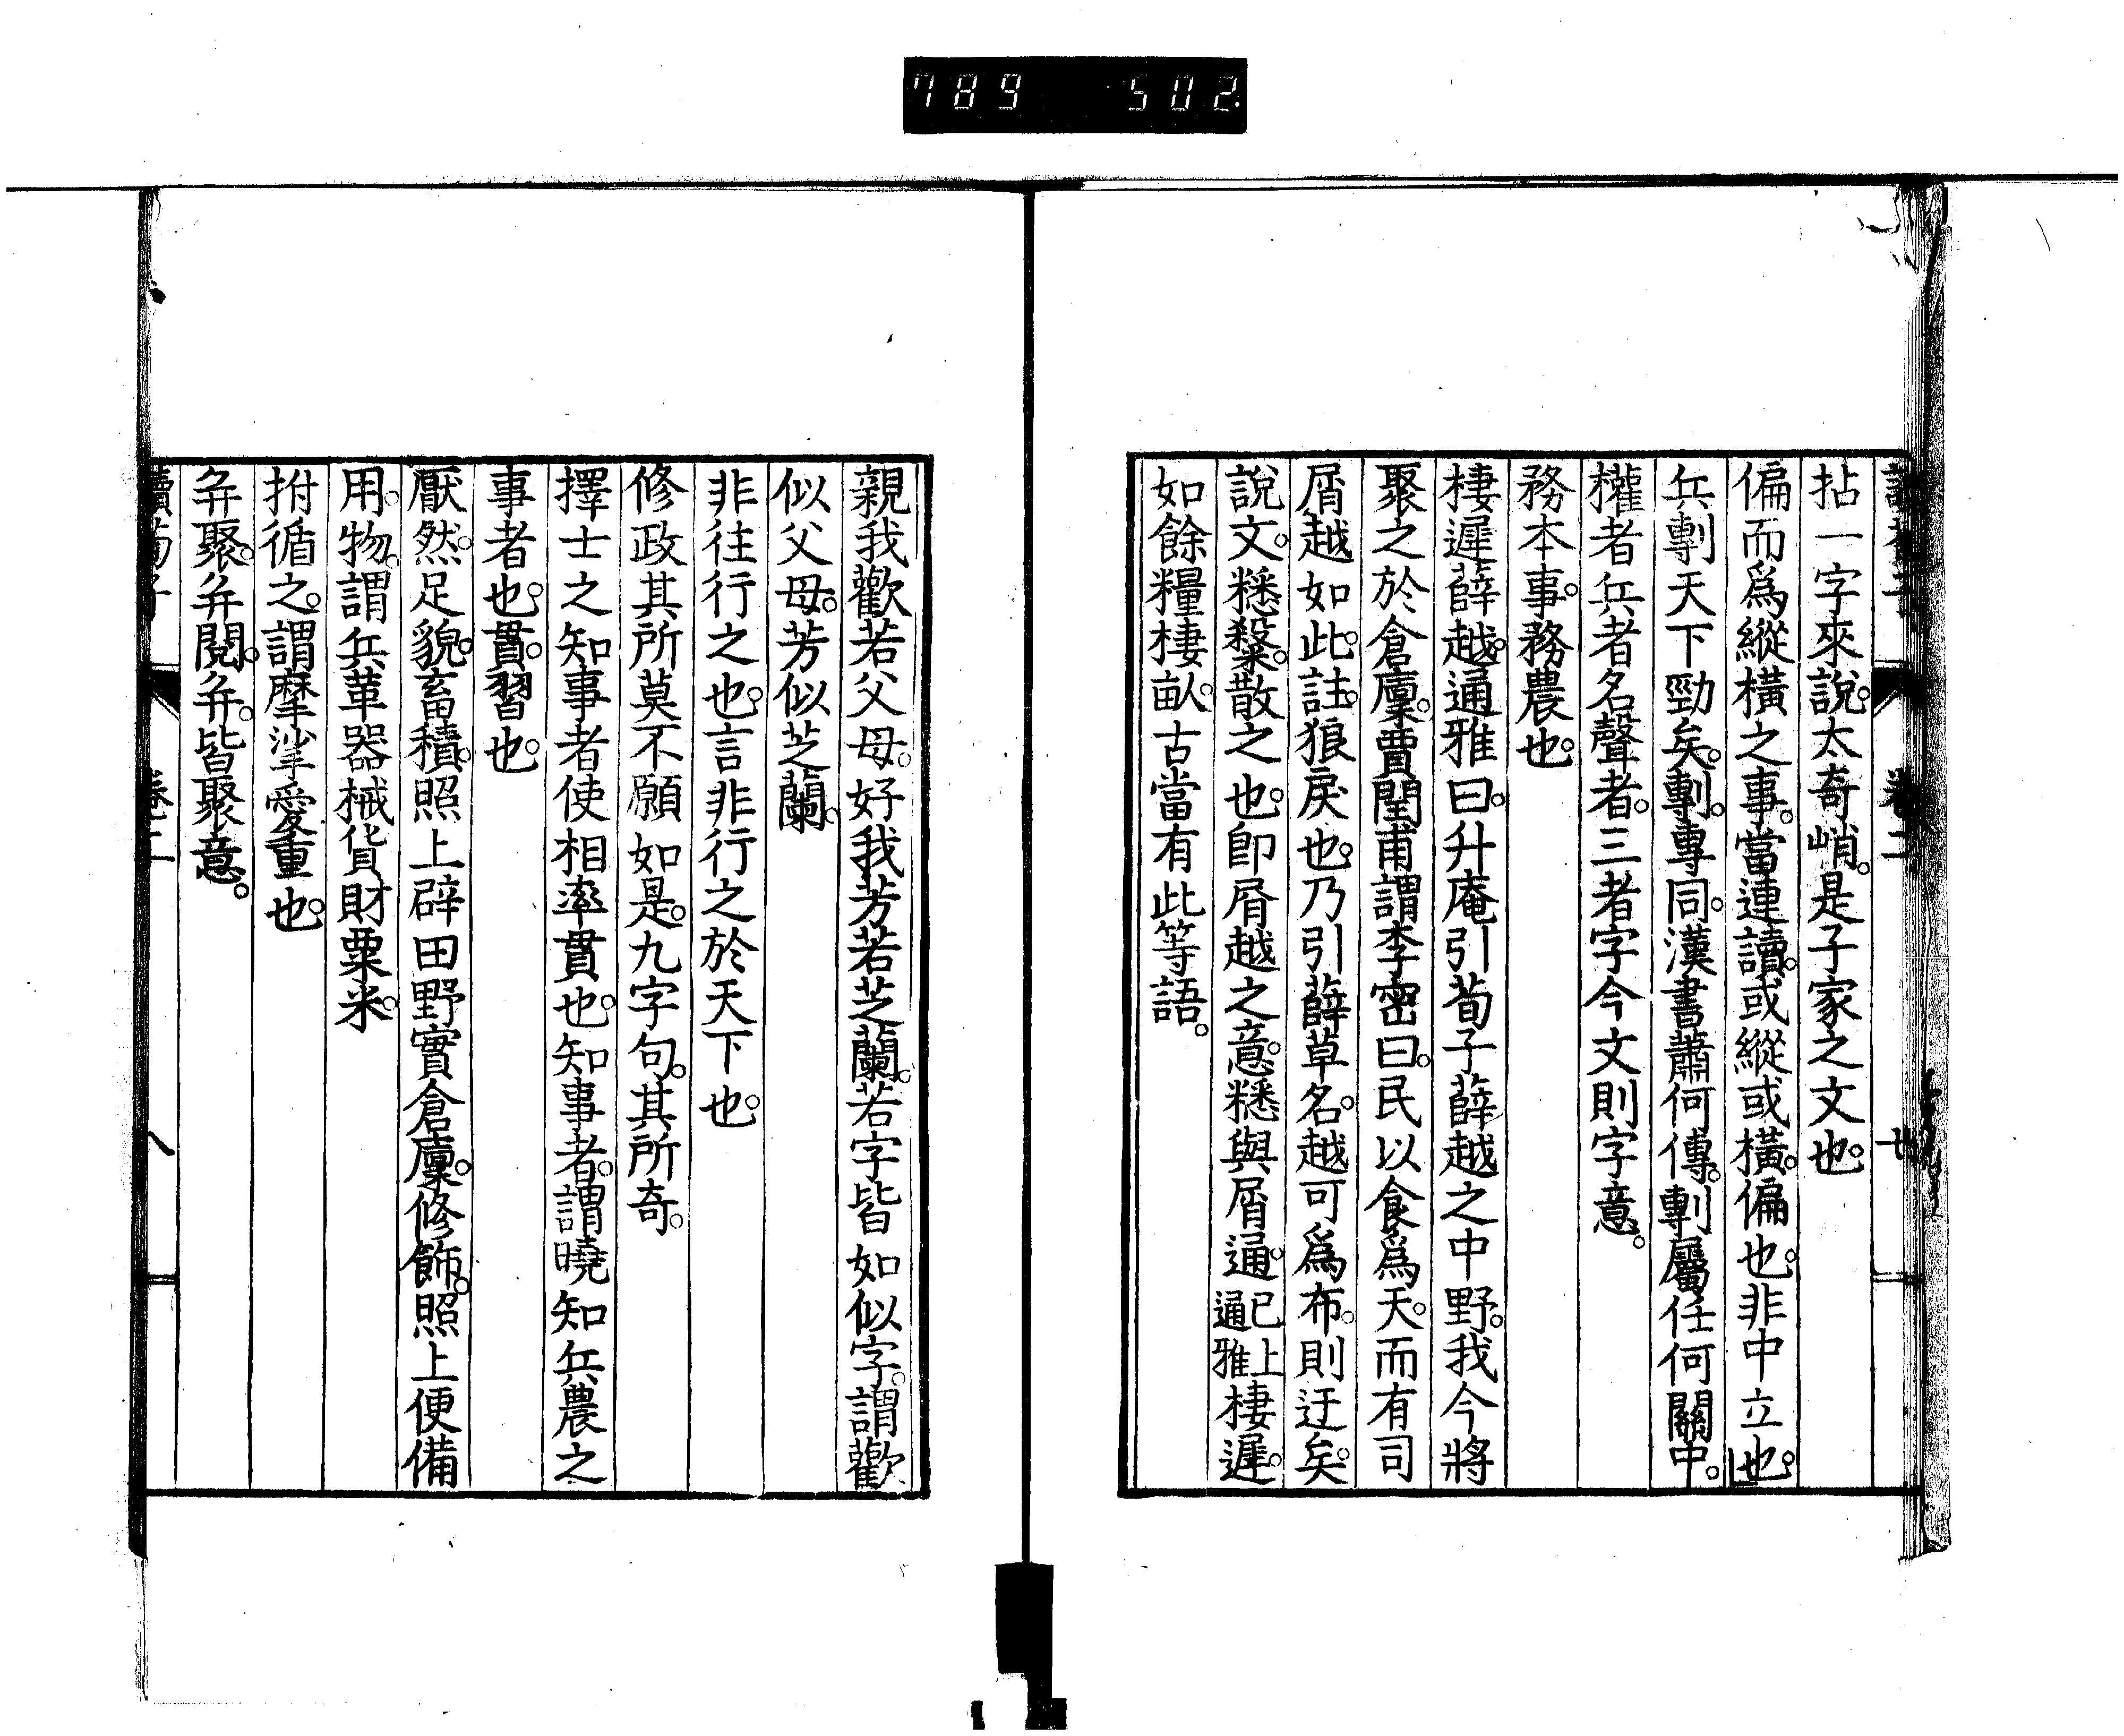 789 502
拈一字來說。太奇峭。是子家之文也。
偏而爲縱橫之事。當連讀。或縱或橫。偏也。非中立也。
兵剸天下勁矣。剸。專同。漢書蕭何傳。剸屬任何關中。
權者兵者名聲者。三者字今文則字意。
務本事。務農也。
棲遲薛越。通雅曰。升庵引荀子薛越之中野。我今將
聚之於倉廩。賈閏甫謂李密曰。民以食爲天。而有司
屑越如此。註。狼戾也。乃引薛草名。越可爲布。則迂矣。
說文。𥻦䊝。散之也。卽屑越之意。𥻦與屑通。已上通雅棲遲。
如餘糧棲畝。古當有此等語。
親我歡若父母。好我芳若芝蘭。若字皆如似字。謂歡
似父母。芳似芝蘭。
非往行之也。言非行之於天下也。
修政其所莫不願如是。九字句。其所奇。
擇士之知事者使相率貫也。知事者。謂曉知兵農之
事者也。貫。習也。
厭然。足貌。畜積。照上辟田野實倉廩。修飾。照上便備
用。物。謂兵革器械貨財粟米。
拊循之。謂摩挲愛重也。
弁聚。弁閱。弁。皆聚意。
讀荀子 卷二